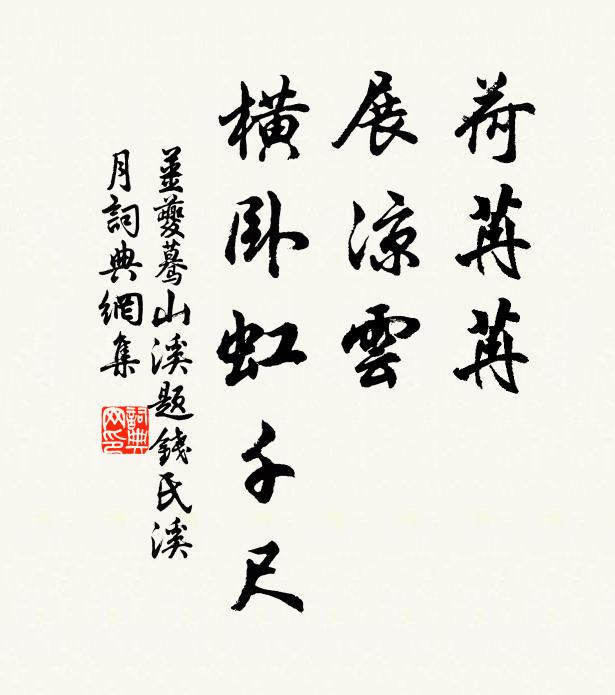 荷苒苒
展涼雲
橫臥虹千尺
姜夔驀山溪題錢氏溪
月詞典網集
詞典
网印